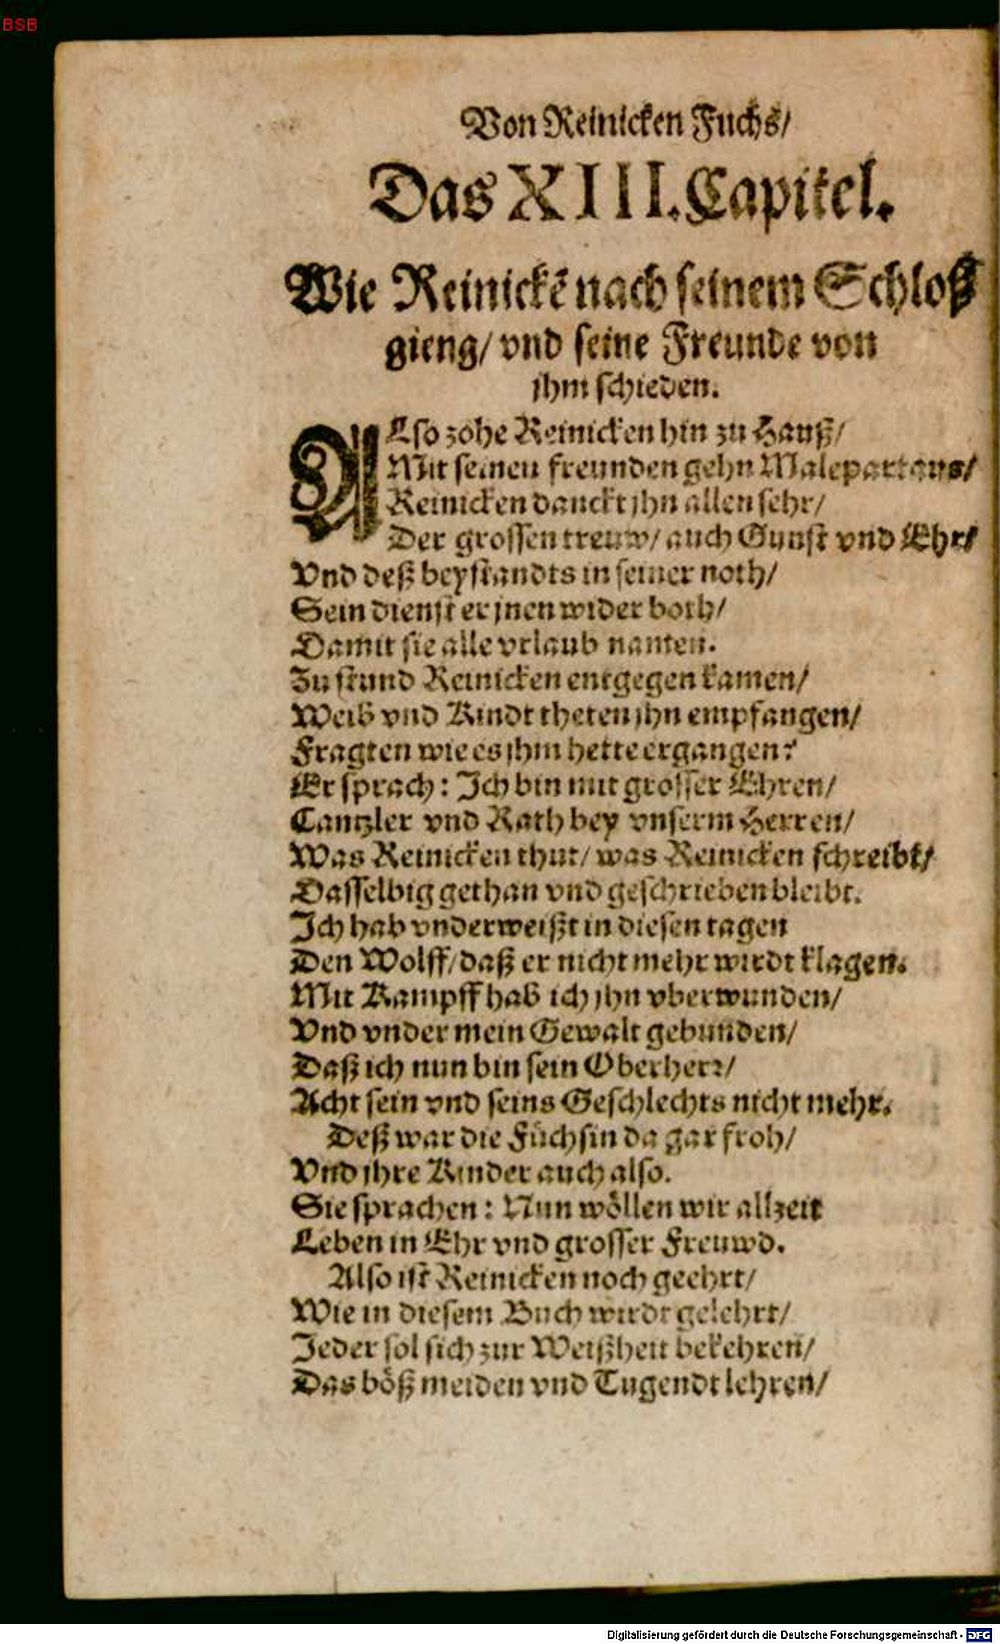 BSB
Von Reinicken Fuchs/
Das XIII. Capitel.
Wie Reinickē nach seinem Schloß
gieng/ vnd seine Freunde von
jhm schieden.
ALso zohe Reinicken hin zu Hauß/
Mit seinen freunden gehn Malepartaus/
Reinicken danckt jhn allen sehr/
Der grossen treuw/ auch Gunst vnd Ehr/
Vnd deß beystandts in seiner noth/
Sein dienst er jnen wider both/
Damit sie alle vrlaub namen.
Zu stund Reinicken entgegen kamen/
Weib vnd Kindt theten jhn empfangen/
Fragten wie es jhm hette ergangen?
Er sprach: Ich bin mit grosser Ehren/
Cantzler vnd Rath bey vnserm Herren/
Was Reinicken thut/ was Reinicken schreibt/
Dasselbig gethan vnd geschrieben bleibt.
Ich hab vnderweißt in diesen tagen
Den Wolff/ daß er nicht mehr wirdt klagen.
Mit Kampff hab ich jhn vberwunden/
Vnd vnder mein Gewalt gebunden/
Daß ich nun bin sein Oberherr/
Acht sein vnd seins Geschlechts nicht mehr.
Deß war die Füchsin da gar froh/
Vnd jhre Kinder auch also.
Sie sprachen: Nun wöllen wir allzeit
Leben in Ehr vnd grosser Freuwd.
Also ist Reinicken noch geehrt/
Wie in diesem Buch wirdt gelehrt/
Jeder sol sich zur Weißheit bekehren/
Das böß meiden vnd Tugendt lehren/
Digitalisierung gefördert durch die Deutsche Forschungsgemeinschaft - DFG